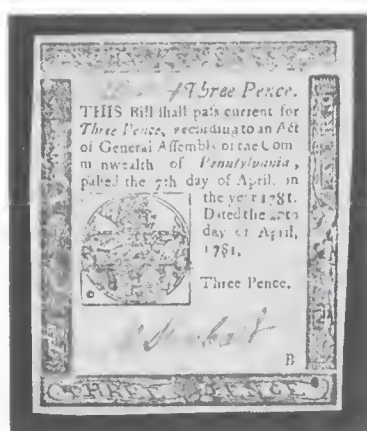 Three Pence.
THIS Bill ſhall paſs current for
Three Pence, according to an Act
of General Aſſembly of the Com
m nwealth of Pennſylvania,
paſſed the 7th day of April, in
the year 1781.
Dated the
day of April,
1781.
Three Pence.
B
THREE PENCE